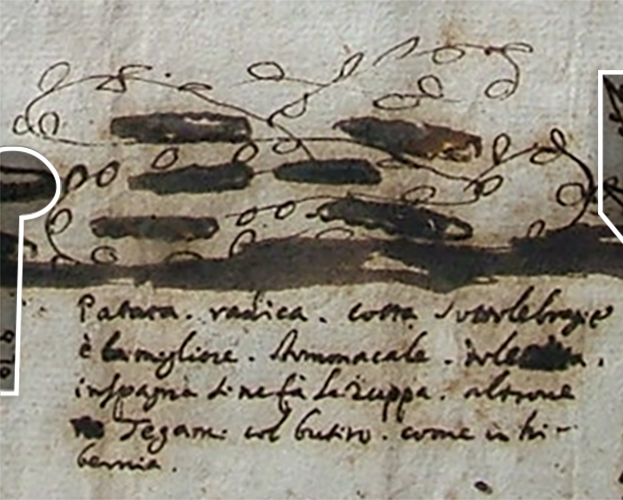 Patata. radica. cotta sottolebragie
è la migliore. Ammacale.
in spagna si ne fà la zuppa. altrove
Tegami col butiro. come in hi-
bernia.